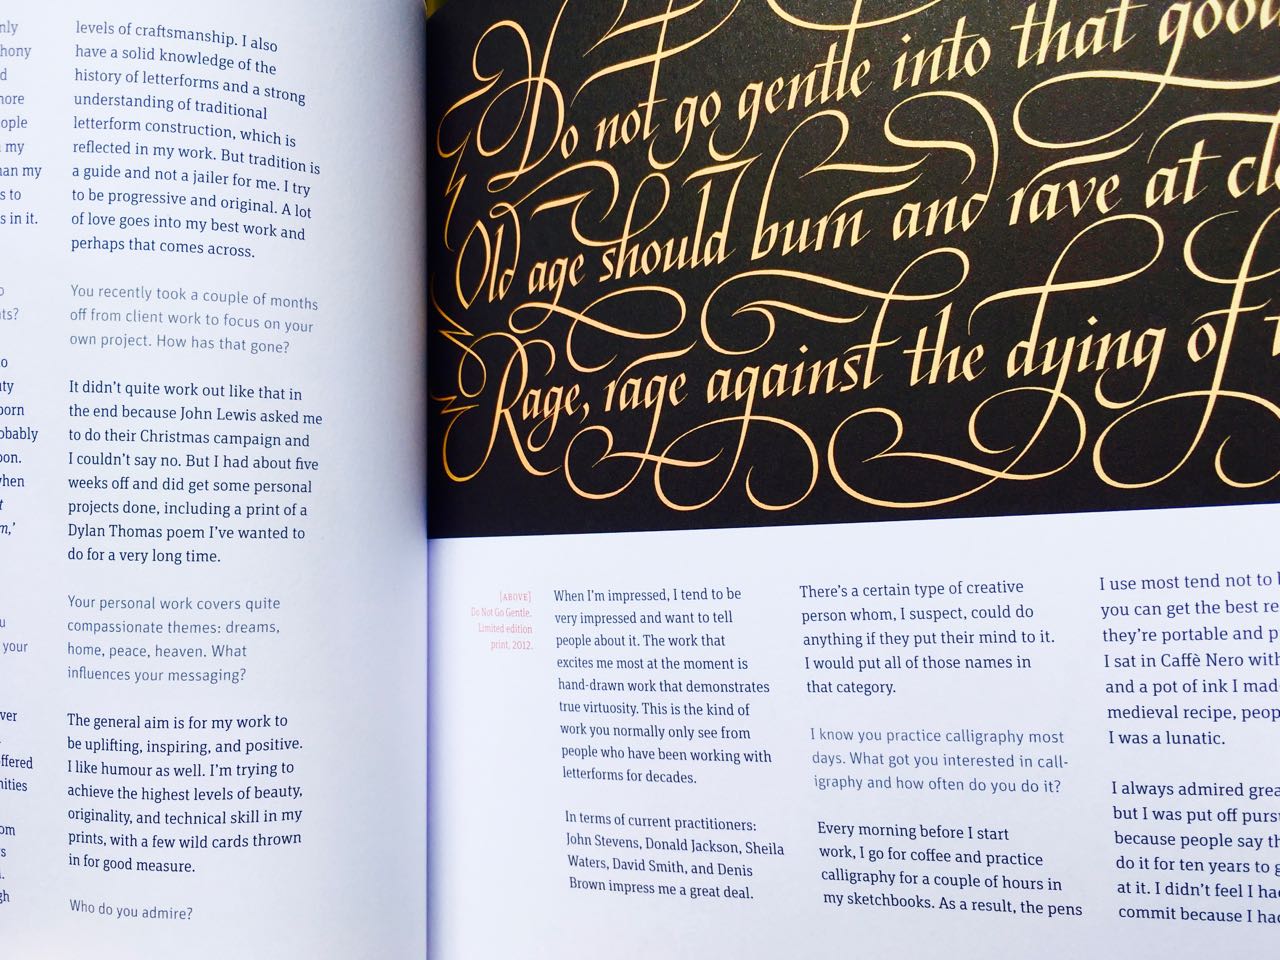 nly
hony
d
more
ople
my
han my
s to
s in it.
o
nts?
to
uty
born
obably
oon.
when
t
m,’
u
your
ver
offered
nities
om
s
gh
levels of craftsmanship. I also
have a solid knowledge of the
history of letterforms and a strong
understanding of traditional
letterform construction, which is
reflected in my work. But tradition is
a guide and not a jailer for me. I try
to be progressive and original. A lot
of love goes into my best work and
perhaps that comes across.
You recently took a couple of months
off from client work to focus on your
own project. How has that gone?
It didn’t quite work out like that in
the end because John Lewis asked me
to do their Christmas campaign and
I couldn’t say no. But I had about five
weeks off and did get some personal
projects done, including a print of a
Dylan Thomas poem I’ve wanted to
do for a very long time.
Your personal work covers quite
compassionate themes: dreams,
home, peace, heaven. What
influences your messaging?
The general aim is for my work to
be uplifting, inspiring, and positive.
I like humour as well. I’m trying to
achieve the highest levels of beauty,
originality, and technical skill in my
prints, with a few wild cards thrown
in for good measure.
Who do you admire?
Do not go gentle into that good
Old age should burn and rave at clo
Rage, rage against the dying of t
[ABOVE]
Do Not Go Gentle.
Limited edition
print, 2012.
When I’m impressed, I tend to be
very impressed and want to tell
people about it. The work that
excites me most at the moment is
hand-drawn work that demonstrates
true virtuosity. This is the kind of
work you normally only see from
people who have been working with
letterforms for decades.
In terms of current practitioners:
John Stevens, Donald Jackson, Sheila
Waters, David Smith, and Denis
Brown impress me a great deal.
There’s a certain type of creative
person whom, I suspect, could do
anything if they put their mind to it.
I would put all of those names in
that category.
I know you practice calligraphy most
days. What got you interested in call-
igraphy and how often do you do it?
Every morning before I start
work, I go for coffee and practice
calligraphy for a couple of hours in
my sketchbooks. As a result, the pens
I use most tend not to b
you can get the best re
they’re portable and p
I sat in Caffè Nero with
and a pot of ink I mad
medieval recipe, peop
I was a lunatic.
I always admired grea
but I was put off pursu
because people say th
do it for ten years to g
at it. I didn’t feel I ha
commit because I had